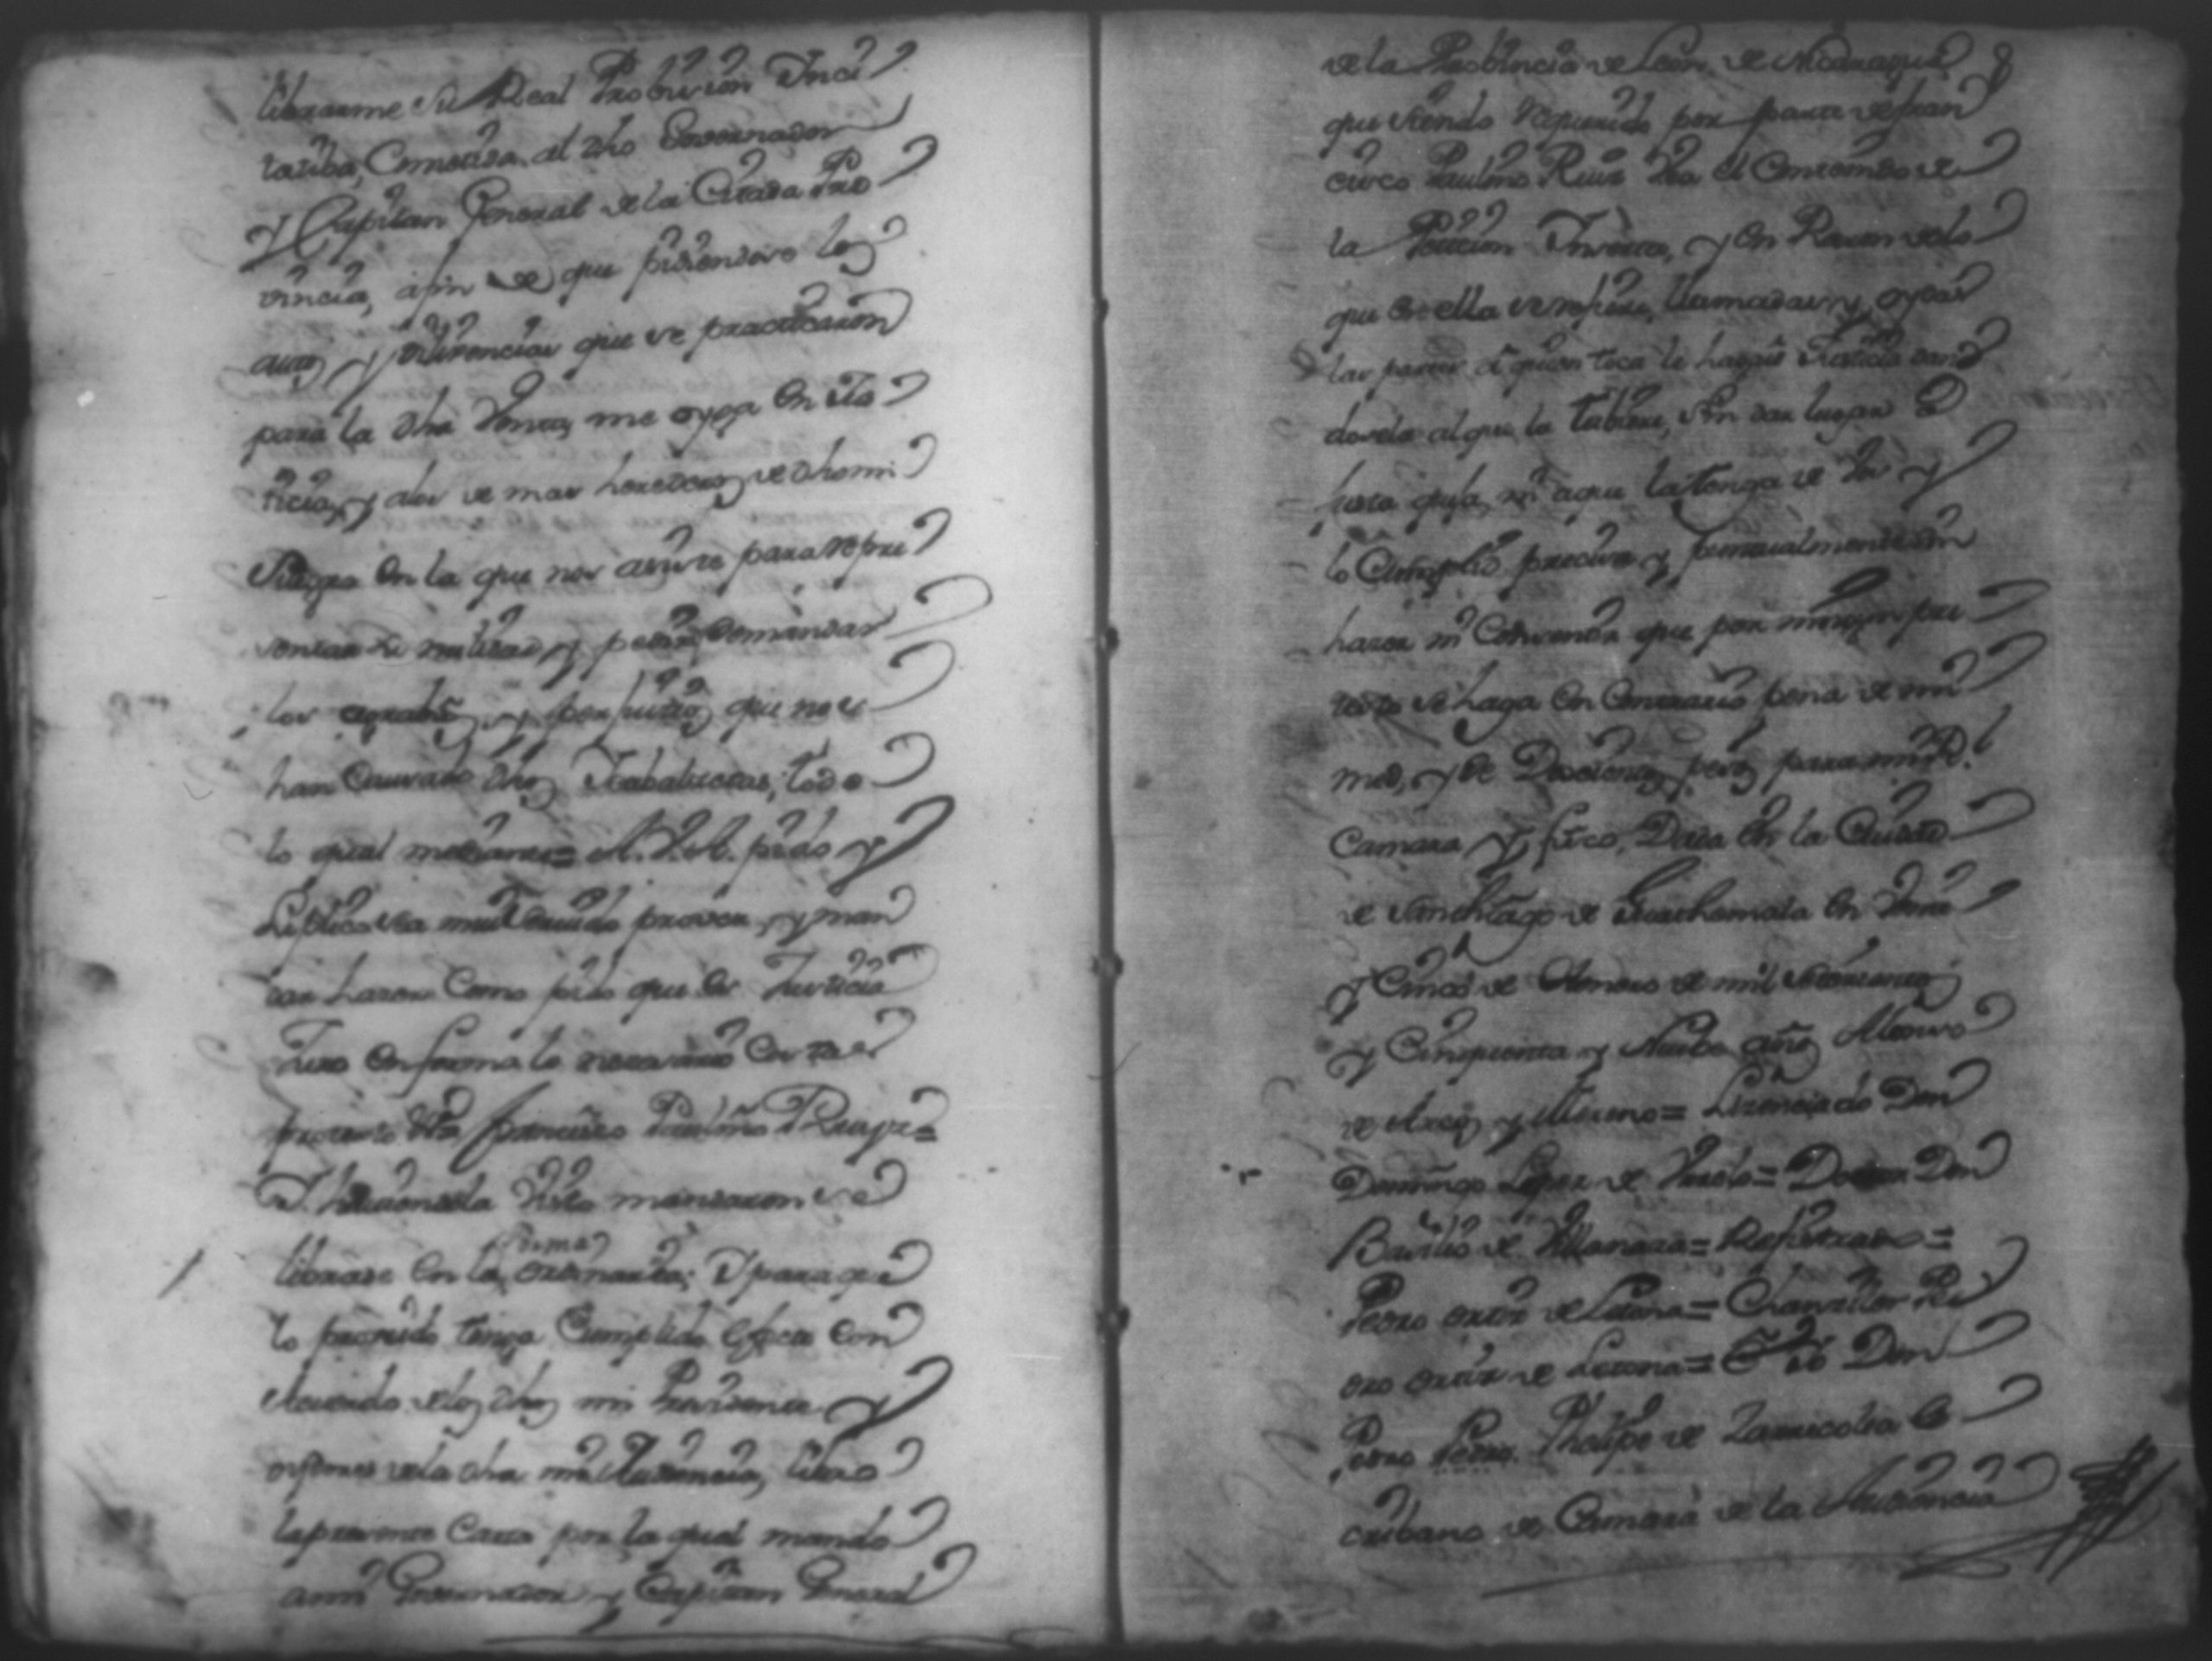 librarme Su Real Probision Inci
tatiba, Cometida al dho Governador
y Capitan General de la Citada Pro
vincia, afin de que pidiendose los
autos y diligencias que se practicaron
para la dha Venta, me oyga en Jus
ticia, y alos de mas herederos de dho mi
Suegro en la que nos asiste para repre
sentar su nulidad, y pedir, y demandar
los agrabios, y perjuicios que nos
han Causado dhos; todo
lo qual mediante= A. V. A. pido y
Suplico sea mui Servido proveer, y man
dar hazer Como pido que es Justicia
Juro en forma lo necesario Costas
protesto Vta Francisco Paulino Ruiz=
I haviendola Visto mandaron se
forma
librase en la ordinaria; I para que
lo proveido tenga Cumplido efecto Con
Acuerdo delos dhos mi Presidente y
oydores dela dha mi Audiencia, libro
la presente Carta por la qual mando
a mi Governador y Capitan General
de la Probincia de Leon de Nicaragua
que siendo requerido por parte de Fran
cisco Paulino Ruiz Vea el Contenido de
la Peticion Inserta, y en Razon de lo
que en ella se refiere, llamadas y oydas
las partes a quien toca le hagais Justicia dan
dosela al que la tubiere, sin dar lugar a
que la tenga de
lo Cumplid precisa y puntualmente sin
hazer ni Consentir que por ningun pre
texto se haga en Contrario pena de mi
mrd, y de Doscientos pesos para mi Rl
Camara y fisco, Dada en la Ciudad
de Santhiago de Guathemala en Veinte
y Cinco de Henero de mil Setecientos
y Cinquenta y Nueve años Alonso
de Arcos y Moreno= Lizenciado Don
Domingo Lopez de Urrelo= Doctor Don
Basilio de Villarrasa= Rexistrada=
Pedro ortiz de Letona= Chanziller Pe
dro ortiz de Letona= Don
Pedro Phelipe de Es
cribano de Camara de la Audiencia